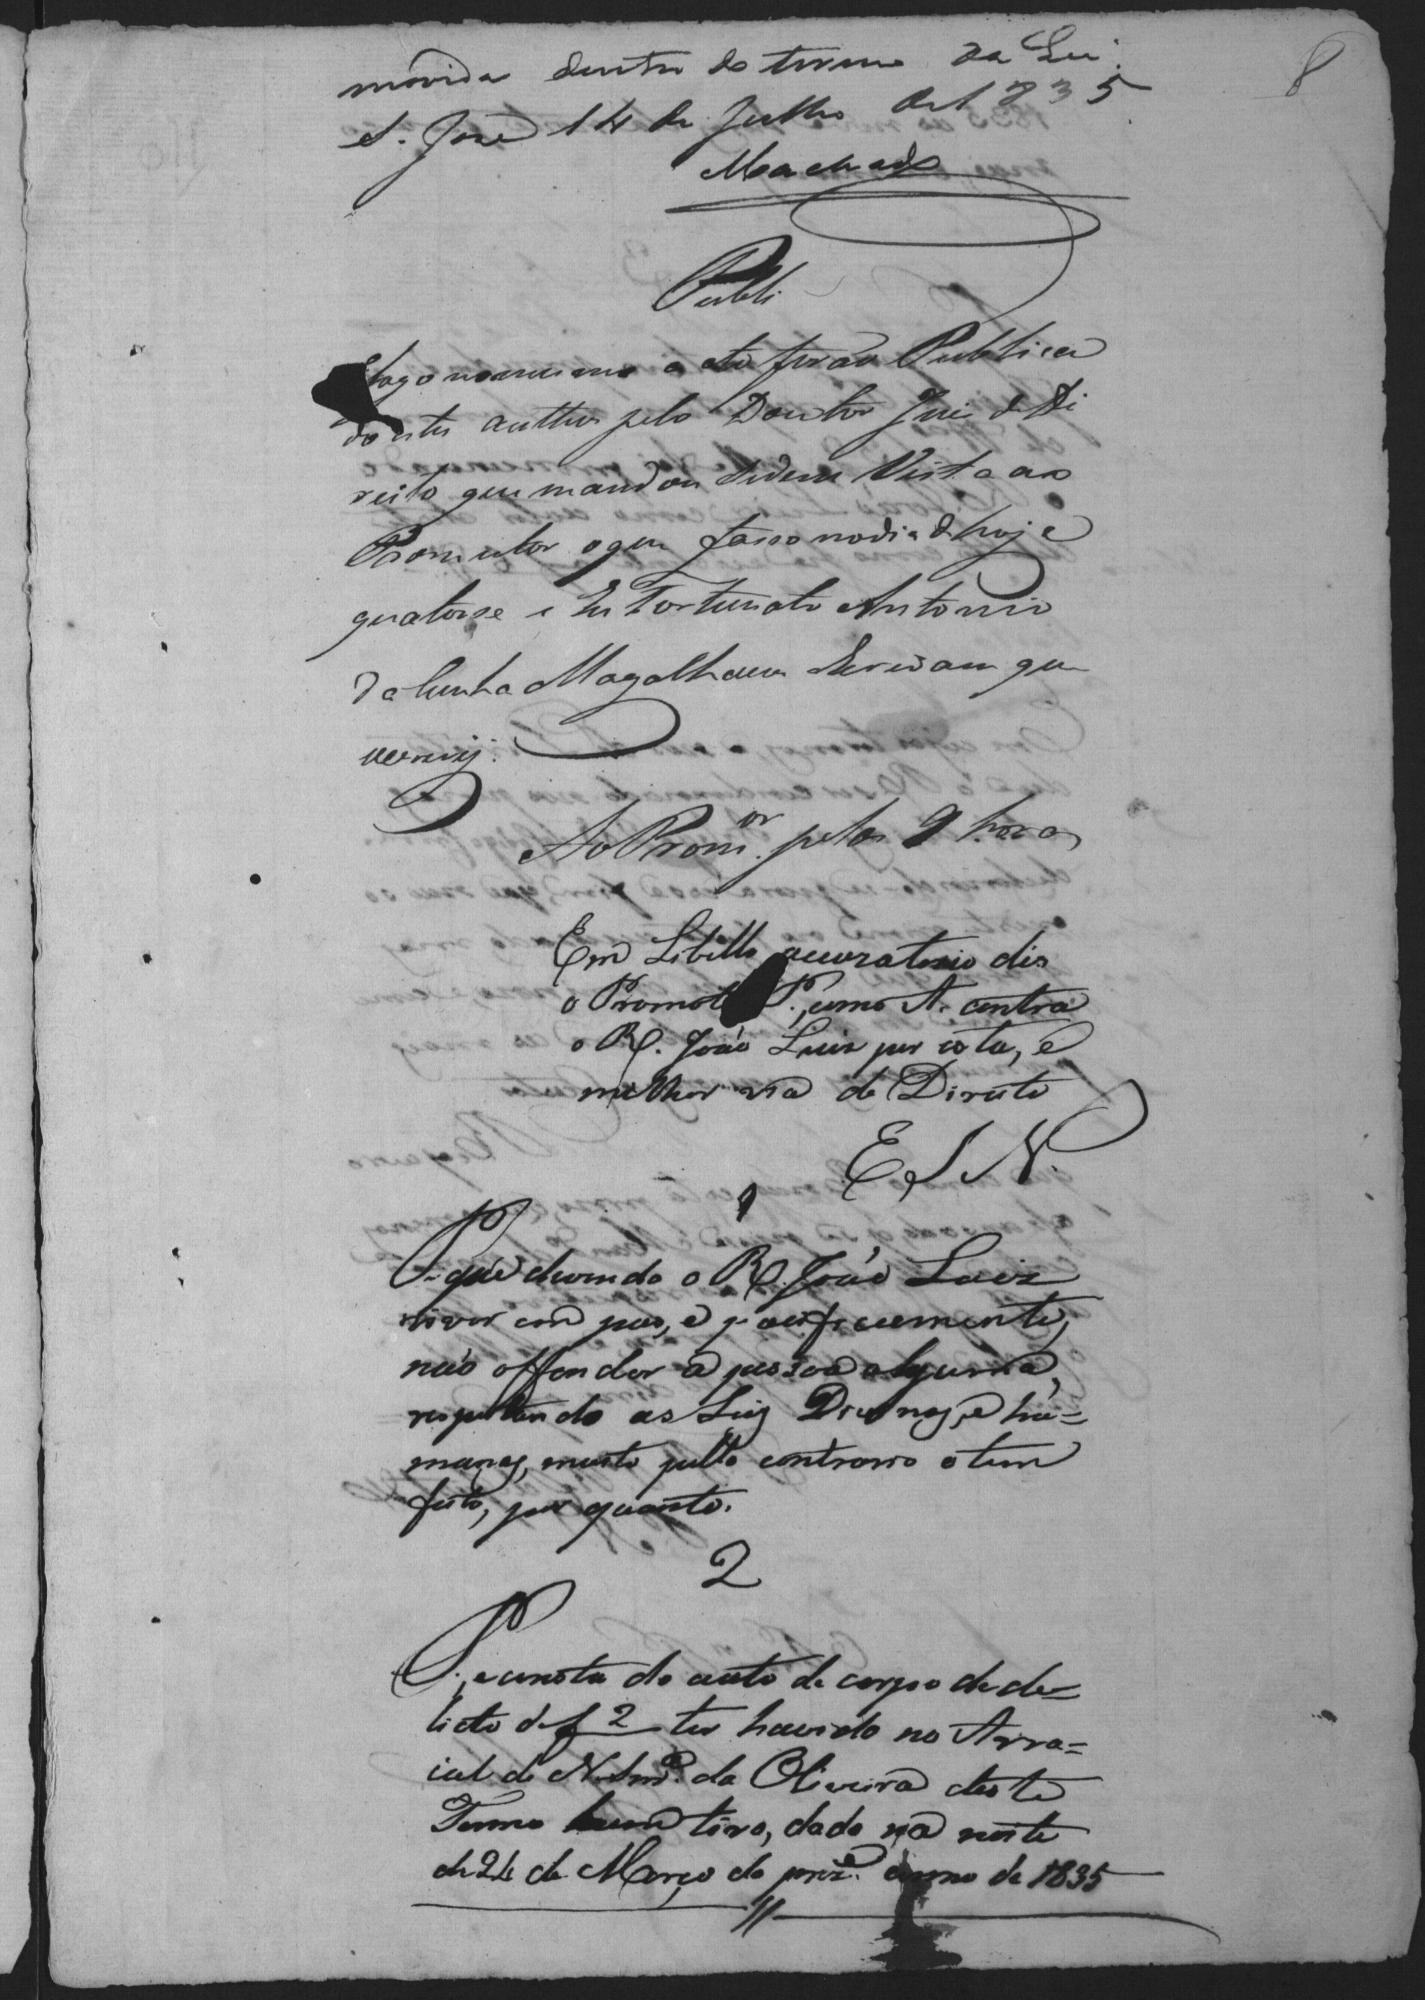 8
movida dentro do termo da Lei.
S. José 14 de Julho de 1835
Machado
Publi
E logo no mesmo acto forão Publica
do estes auttos pelo Doutor Juis de Di
reito que mandou dar Vista ao
Promutor o que fasso no dia de hoje
quatorse e Eu Fortunato Antonio
da Cunha Magalhaens Escrivam que
escrevy.
Ao Prom.or pelas 9 horas
Em Libello accuzatorio dis
o Promotor P., como A. contra
o R. João Luiz por esta, e
melhor via de Direito
E S N.
1
P. que devendo o R. João Luiz
viver em pas, e pacificamente,
não offender a pessoa alguma,
respeitando as Leis Divinas, e hu=
manas, muito pello contrario o tem
feito, por quanto.
2
P., e consta do auto de corpo de de=
licto de f 2 ter havido no Arra=
ial de N. Snr.a da Oliveira deste
Termo hum tiro, dado na noite
de 24 de Março do prez.e anno de 1835